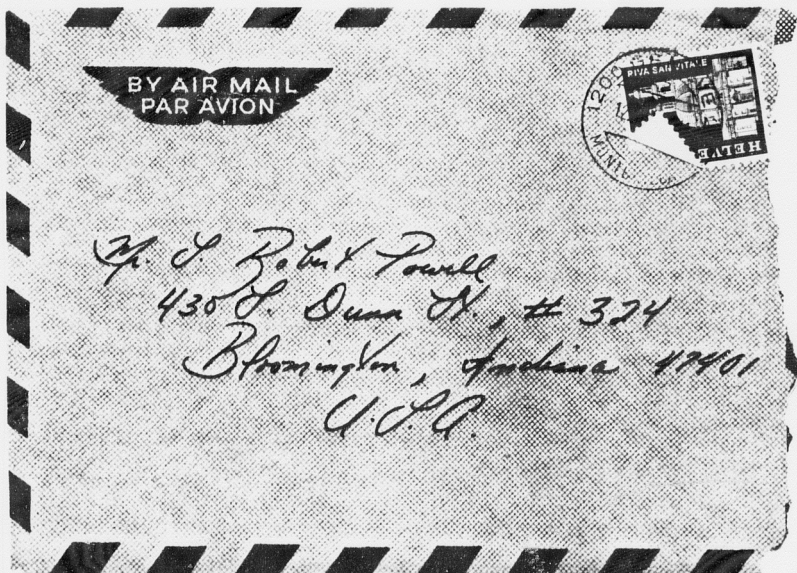 BY AIR MAIL
PAR AVION
1200
RIVA SAN VITALE
HELVE
Mr. S. Robert Powell
430 S. Dunn St., # 324
Bloomington, Indiana 47401
U.S.A.